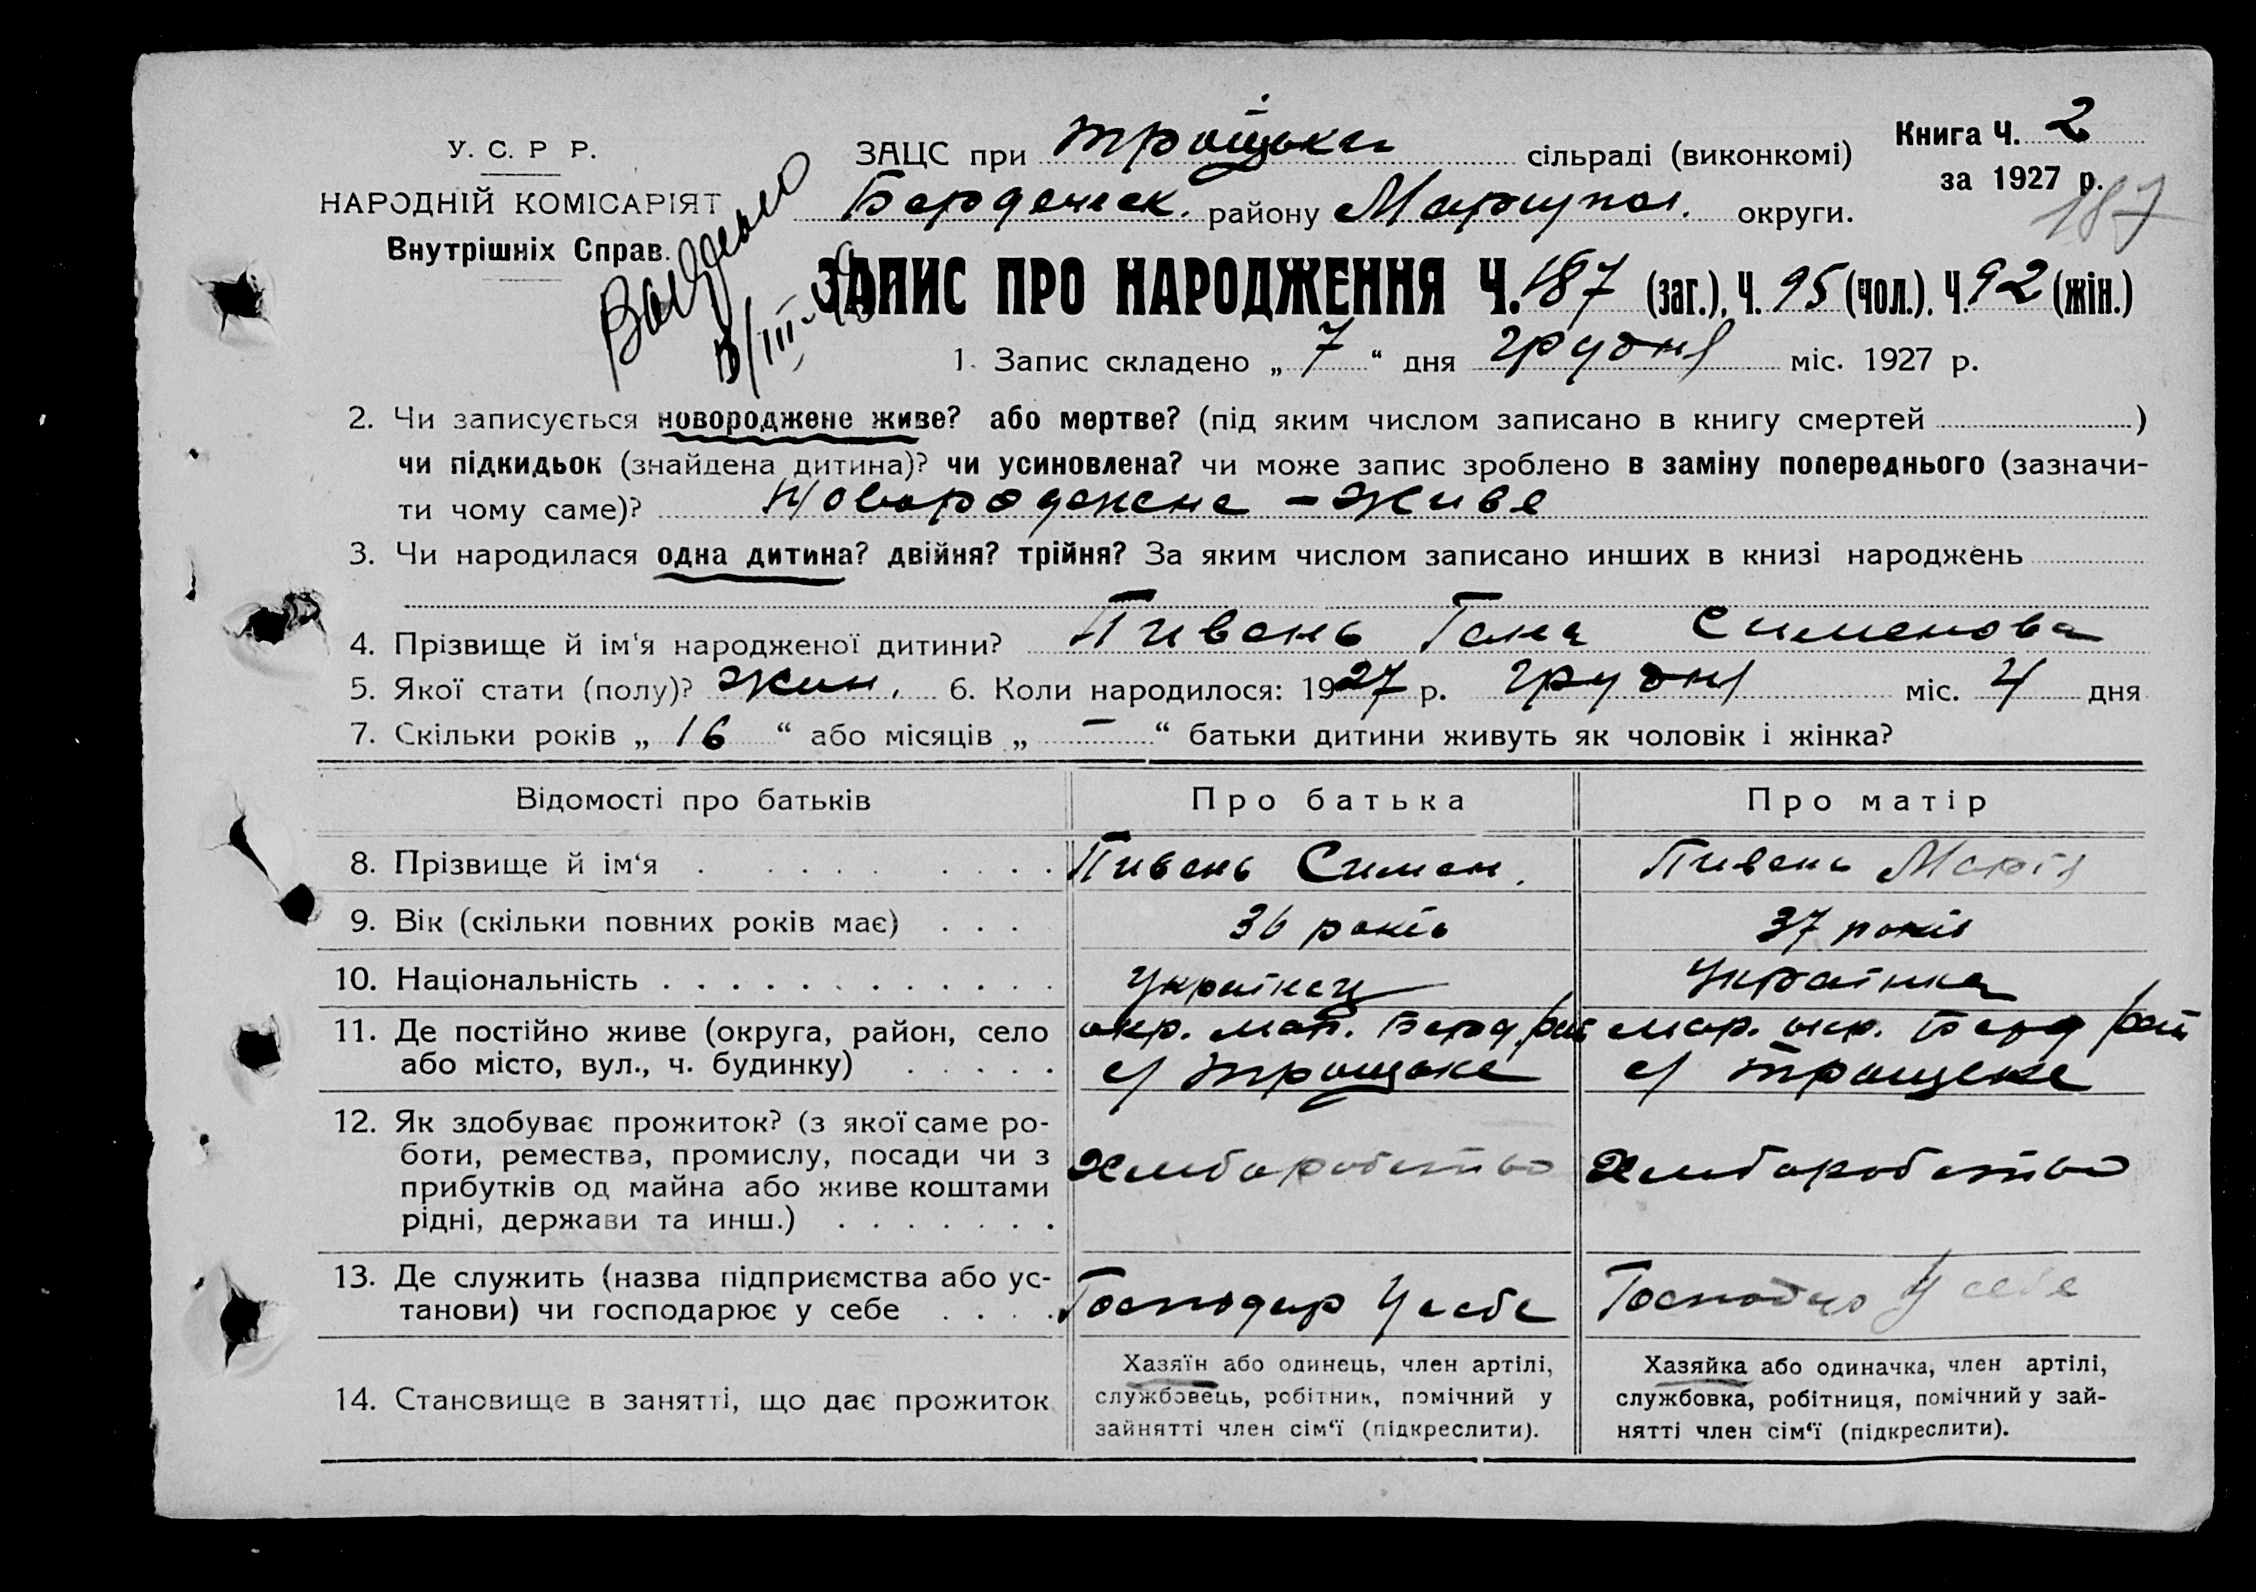 У. С. Р Р.
НАРОДНІЙ КОМІСАРІЯТ
Внутрішніх Справ.
Книга Ч. 2
за 1927 р.
187
ЗАЦС при Троїцькі сільраді (виконкомі)
району Маріупол. округи.
ЗАПИС ПРО НАРОДЖЕННЯ Ч. 187 (заг.), Ч. 95 (чол.), Ч. 92 (жін.)
1. Запис складено „ 7 “ дня грудня міс. 1927 р.
2. Чи записується новороджене живе? або мертве? (під яким числом записано в книгу смертей )
чи підкидьок (знайдена дитина)? чи усиновлена? чи може запис зроблено в заміну попереднього (зазначи-
ти чому саме)? Новороджене - живе
3. Чи народилася одна дитина? двійня? трійня? За яким числом записано инших в книзі народжень
4. Прізвище й ім'я народженої дитини? Пивень Гана Сименова
5. Якої стати (полу)? жин. 6. Коли народилося: 1927 р. грудня міс. 4 дня
7. Скільки років „ 16 “ або місяців „ — “ батьки дитини живуть як чоловік і жінка?
Відомості про батьків Про батька Про матір
8. Прізвище й ім‘я Пивень Симен. Пивень Марія
9. Вік (скільки повних років має) 36 років 37 років
10. Національність Українец Українка
11. Де постійно живе (округа, район, село окр. Мар. Берд. рай Мар. окр. Берд рай
або місто, вул., ч. будинку) с/ Троицьке с/ Троицьке
12. Як здобуває прожиток? (з якої саме ро-
боти, ремества, промислу, посади чи з Хлиборобство Хлиборобство
прибутків од майна або живе коштами
рідні, держави та инш.)
13. Де служить (назва підприємства або ус-
танови) чи господарює у себе Господар У себе У себе
14. Становище в занятті, що дає прожиток
Хазяїн або одинець, член артілі,
службовець, робітник, помічний у
зайнятті член сім‘ї (підкреслити).
Хазяйка або одиначка, член артілі,
службовка, робітниця, помічний у зай-
нятті член сім‘ї (підкреслити).